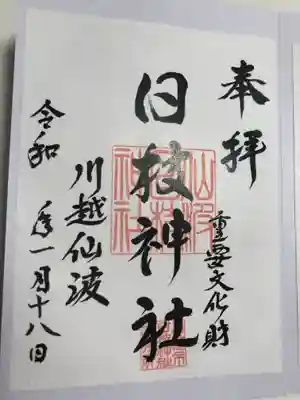 奉拝
重要文化財
日枝神社
川越仙波
令和 年一月十八日